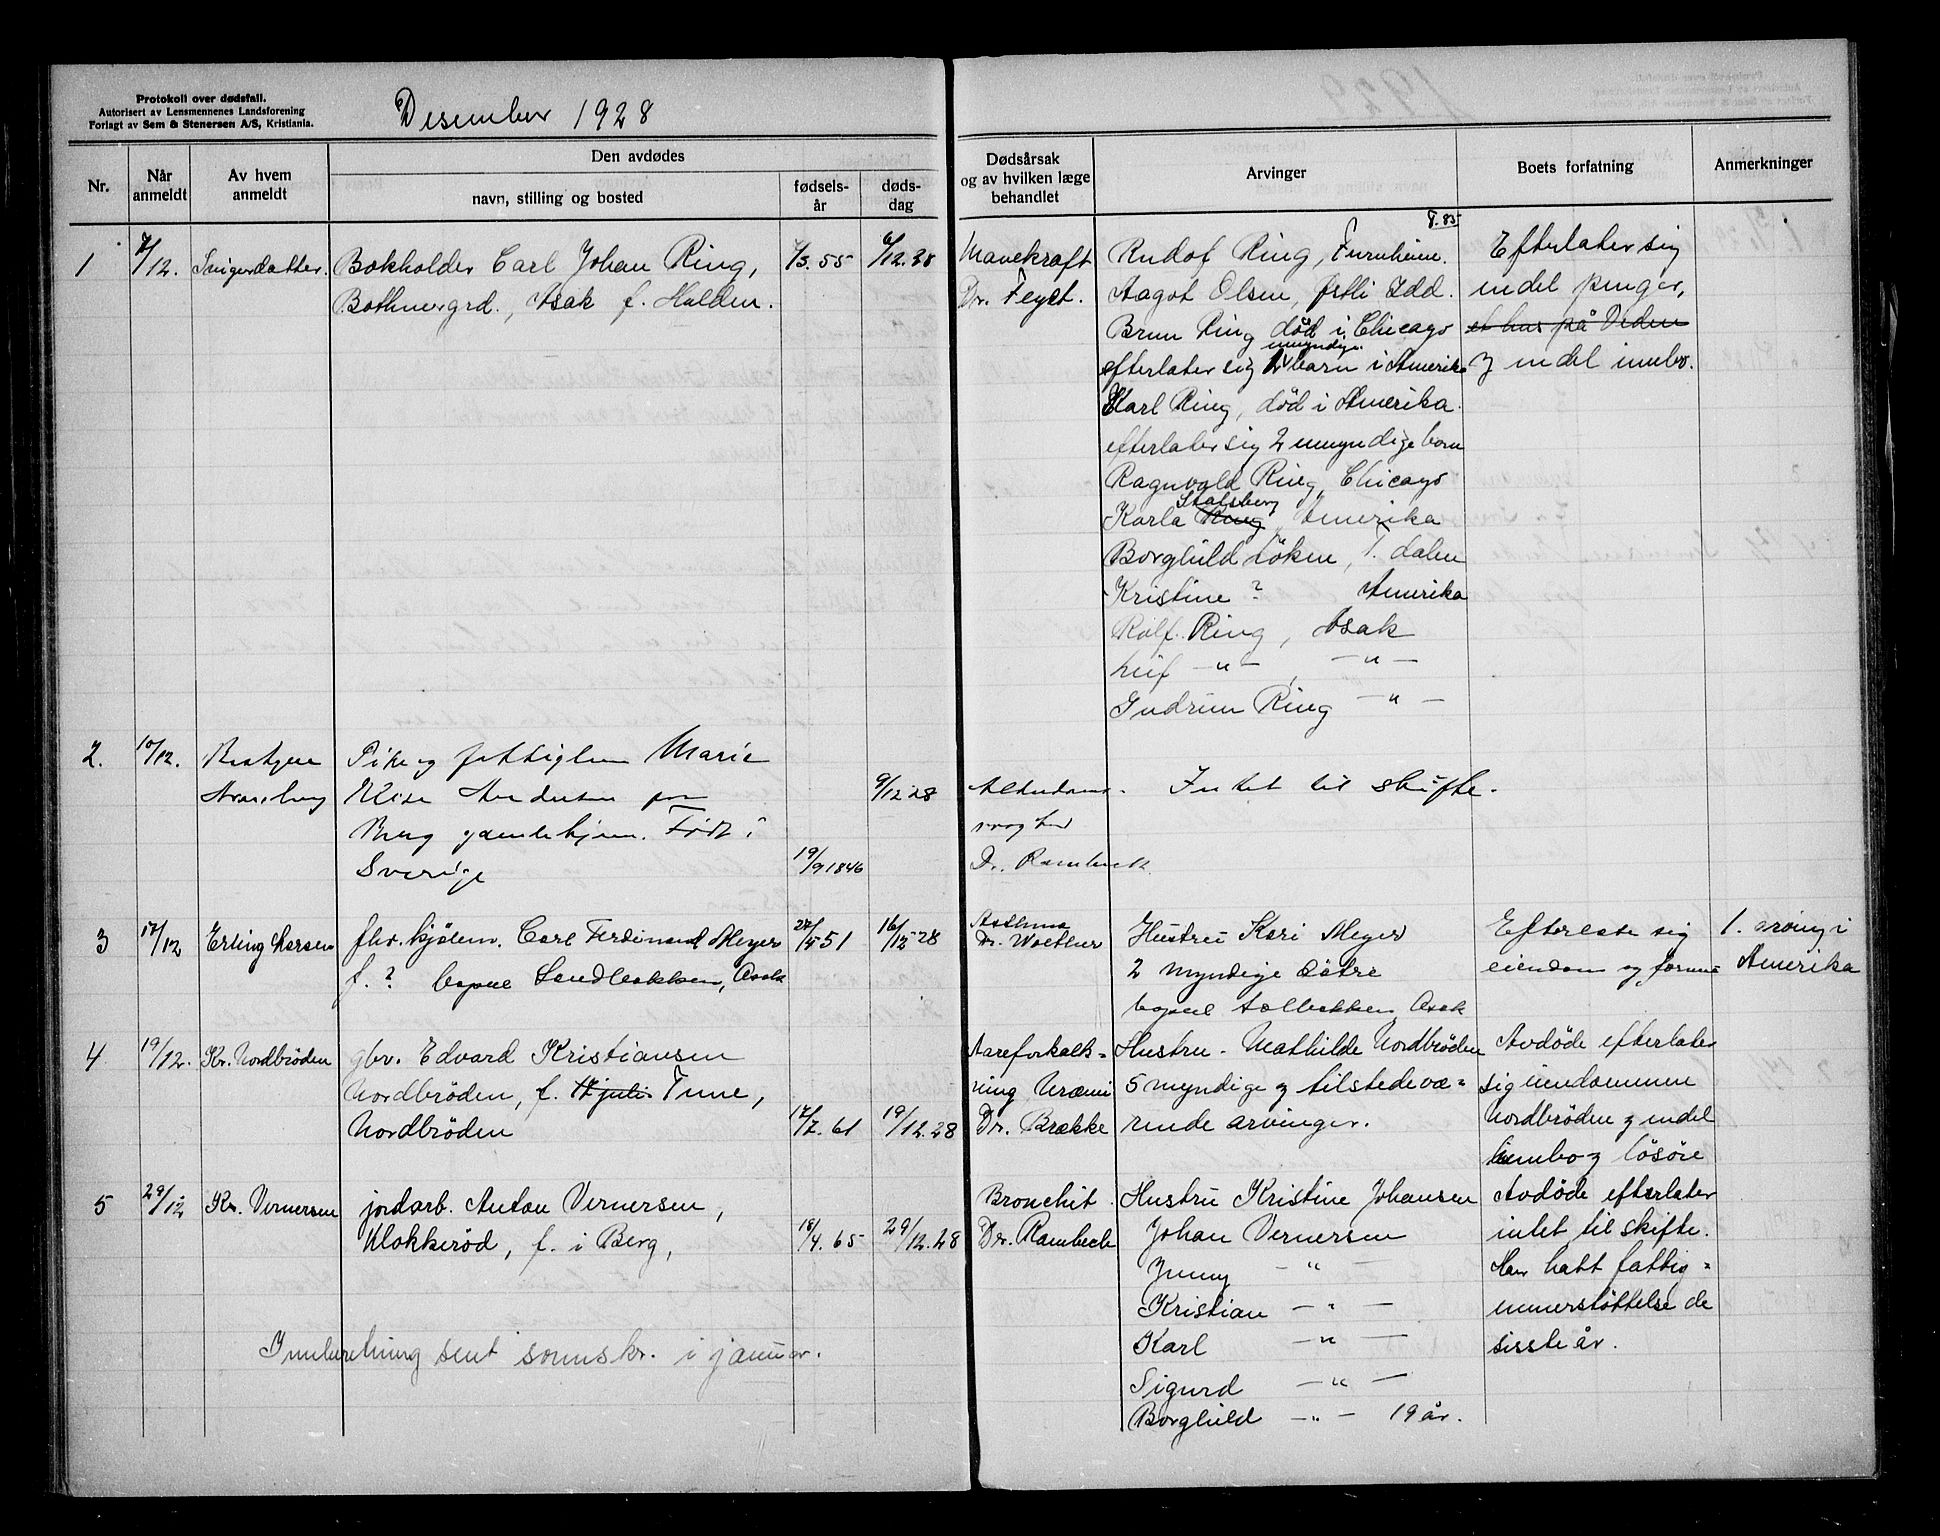 Protokoll over dødsfall.
Autorisert av Lensmennenes Landsforening
Forlagt av Sem & Stenersen A/S, Kristiania.
Desember 1928
1929
Nr.
Når anmeldt
Av hvem anmeldt
Den avdødes
navn, stilling og bosted
fødsels-år
døds-dag
Dødsårsak og av hvilken læge behandlet
Arvinger
Boets forfatning
Anmerkninger
1 7/12. Bokholder Carl Johan Ring, 7/3. 55 6/12. 28
Bothnergrd., Asak f. Halden.
Mavekraft
Dr. Feyct.
f. 85
Rudof Ring, Furuheim.
Aagot Olsen, Østli Idd.
Brun Ring død i Chicago
umyndige
efterlater sig 2 barn i Amerika
Karl Ring, død i Amerika.
efterlater sig 2 umyndige barn
Ragnvald Ring, Chicago
Stalsberg
Karla Ring, Amerika
Borghild Løken, T. dalen
Kristine ? Amerika
Rolf Ring, Asak
Leif — " — , — " —
Gudrun Ring — " —
Efterlater sig
endel penger,
et hus på Veden
og endel innbo.
2. 10/12. Pike og fattiglem Marie
Elise Andersen
Berg gamlehjem. Født i
Sverige
19/9 1846
9/12 28
Alderdoms-
svaghed
Dr. Rambech
Intet til skifte.
3 17/12 Erling Larsen fhv. kjølem. Carl Ferdinand Meyer 27/5 51 16/12 28
f. ? bopæl Sandbakken, Asak
Asthma
Dr. Woethner
Hustru Kari Meyer
2 myndige døtre
bopæl Solbakken Asak
Efterlate sig
eiendom og formue
1. arving i
Amerika
4 19/12. Kr. Nordbrøden gbr. Edvard Kristiansen
Nordbrøden, f. 17 juli Tune,
Nordbrøden
17/7. 61 19/12. 28
Aareforkalk-
ning Uræmi
Dr. Brække
Hustru. Mathilde Nordbrøden
5 myndige og tilstedevæ-
rende arvinger.
Avdøde efterlater
sig eiendommen
Nordbrøden og endel
innbo og løsøre
5 29/12 Kr. Vernersen jordarb. Anton Vernersen,
Klokkerød, f. i Berg,
18/4. 65 29/12. 28
Bronchit.
Dr. Rambech
Hustru Kristine Johansen
Johan Vernersen
Jenny — " —
Kristian — " —
Karl — " —
Sigurd — " —
Borghild — " — 19 år.
Avdøde efterlater
intet til skifte.
Har hatt fattig-
understøttelse de
siste år.
Innberetning sent sorenskr. i januar.